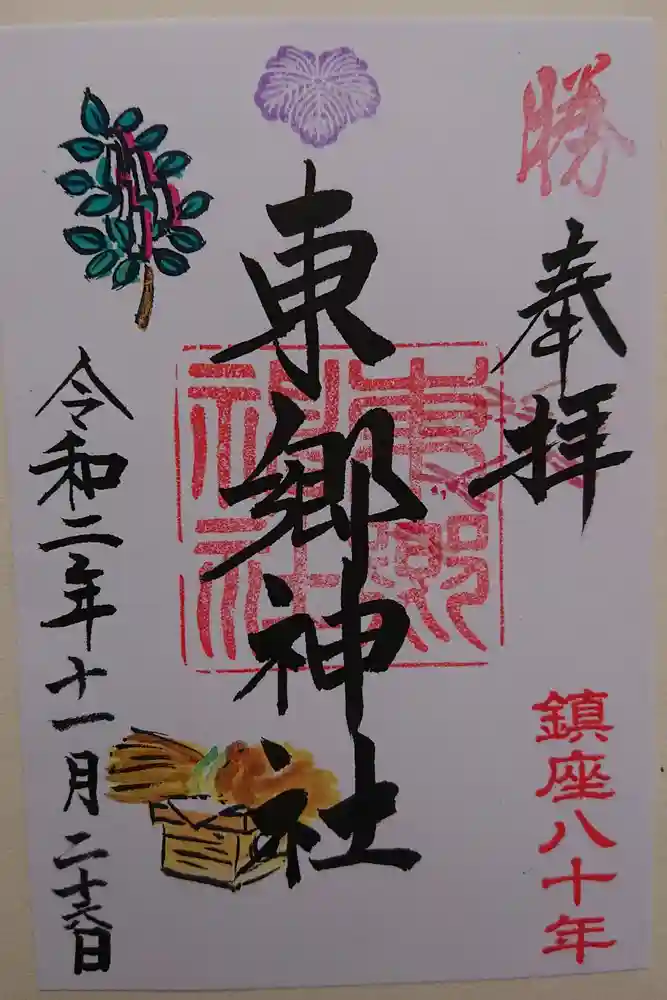 勝
奉拝
東郷神社
東郷
神社
鎮座八十年
令和二年十一月二十六日